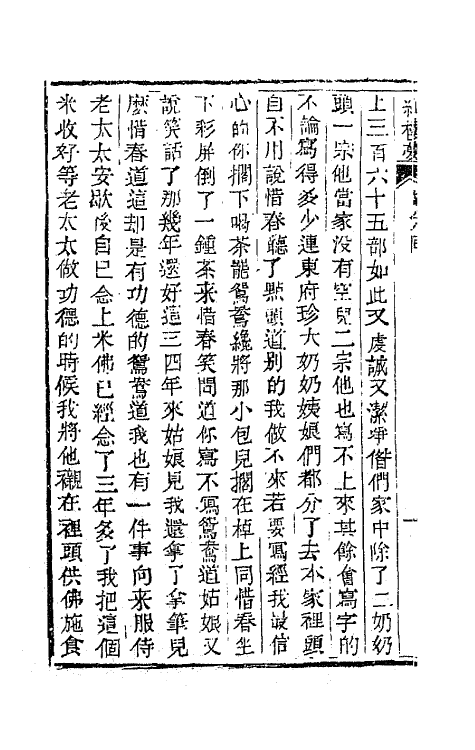 紅樓夢
上三百六十五部如此又虔誠又潔爭偺們家中除了二奶奶
頭一宗他當家没有空兒二宗他也寫不上來其餘會寫字的
不論寫得多少連東府珍大奶奶姨娘們都分了去本家裡頭
自不用說惜春聽了㸃頭道别的我做不來若要寫經我最信
心的你擱下喝茶罷鴛鴦纔將那小包兒擱在棹上同惜春坐
下彩屏倒了一鍾茶来惜春笑問道你寫不寫鴛鴦道姑娘又
說笑話了那幾年還好這三四年來姑娘見我還拿了拿筆兒
麽惜春道這却是有功德的鴛鴦道我也有一件事向来服侍
老太太安歇後自已念上米佛已經念了三年多了我把這個
米收好等老太太做功德的時候我將他襯在裡頭供佛施食